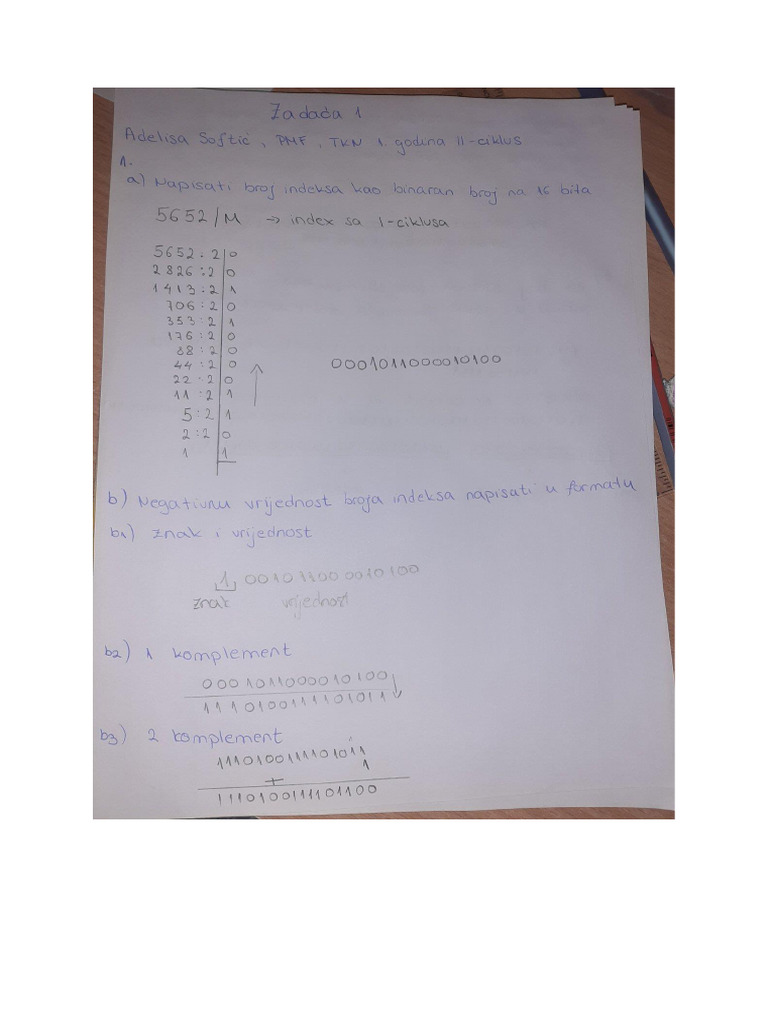 Zadaća 1
Adelisa Softić, PMF, TKN 1. godina II-ciklus
1.
a) Napisati broj indeksa kao binaran broj na 16 bita
5652/M → index sa 1-ciklusa
5652 : 2 | 0
2826 : 2 | 0
1413 : 2 | 1
706 : 2 | 0
353 : 2 | 1
176 : 2 | 0
88 : 2 | 0
44 : 2 | 0
22 : 2 | 0
11 : 2 | 1
5 : 2 | 1
2 : 2 | 0
1 | 1
0001011000010100
b) Negativnu vrijednost broja indeksa napisati u formatu
b1) znak i vrijednost
1 001011000010100
znak vrijednost
b2) 1 komplement
0001011000010100
1110100111101011
b3) 2 komplement
1110100111101011
1
+
1110100111101100